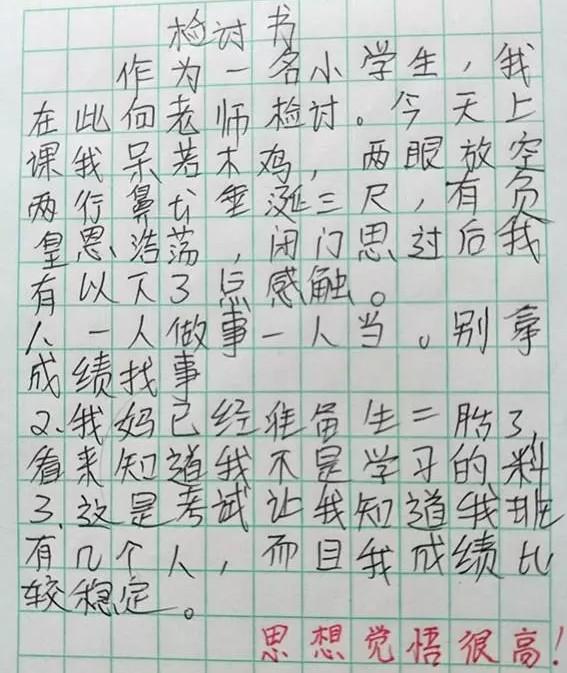 检讨书
作为一名小学生，我
在此向老师检讨。今天上
课我呆若木鸡，两眼放空
两行鼻 垂涎三尺，有负
皇恩浩荡，闭门思过后我
有以下3点感触。
1、一人做事一人当。别拿
成绩找事
2、我妈已经准备生二胎了，
看来知道我不是学习的料
3、这是考试让我知道我班
有几个人，而且我成绩比
较稳定。
思想觉悟很高！